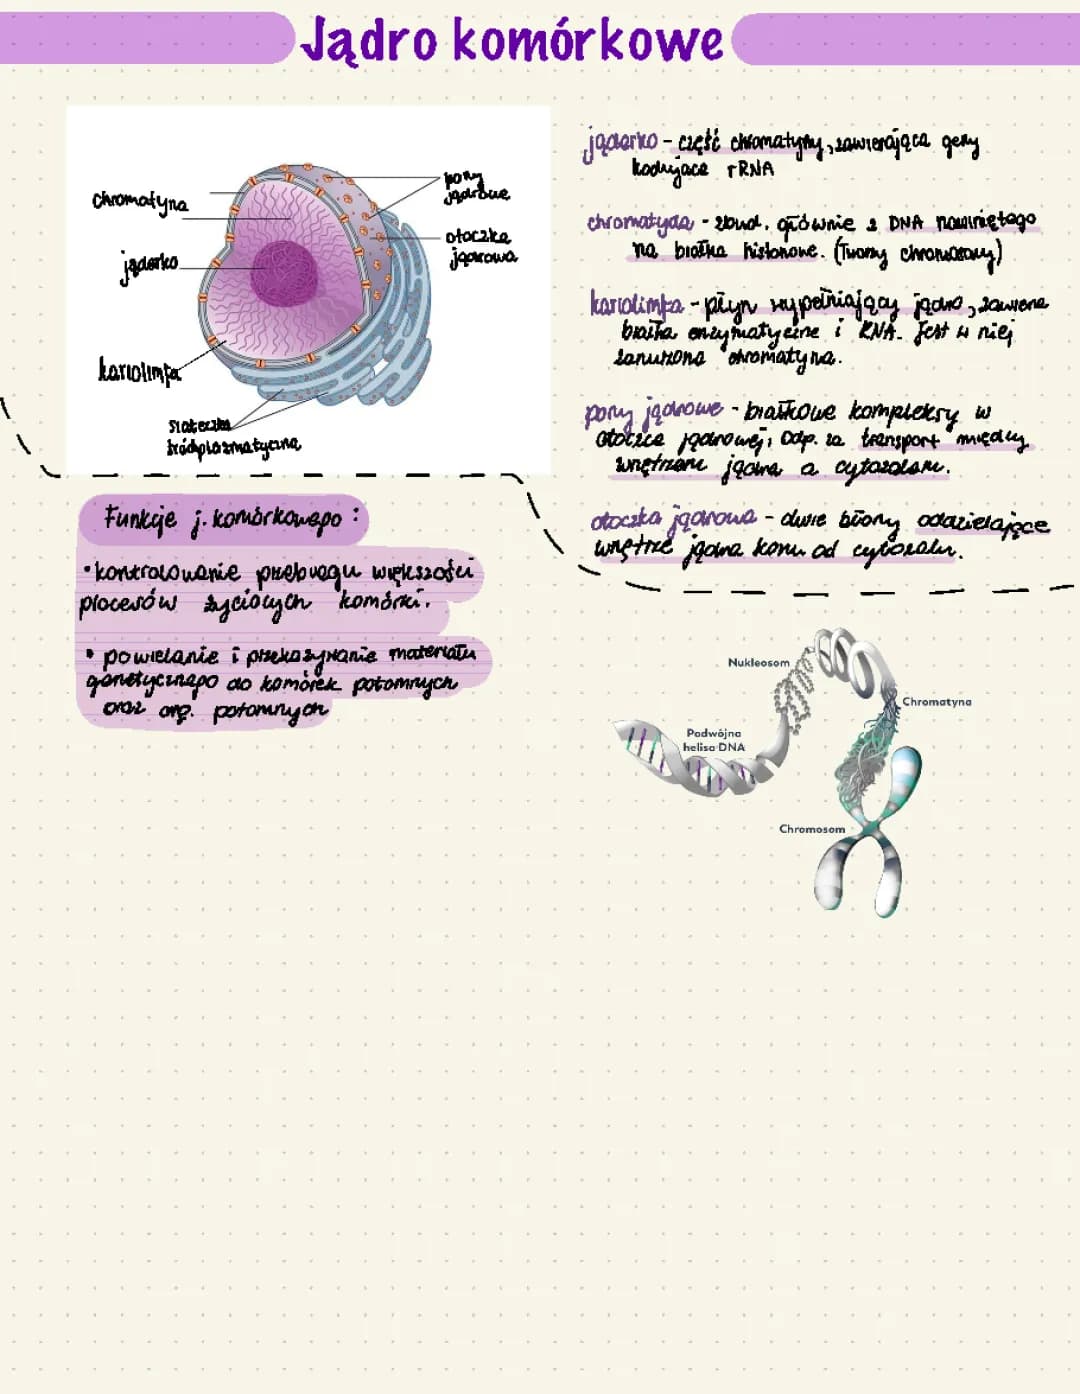 Jądro komórkowe
chromatyna
jąderko
kariolimfa
siateczka
śródplazmatyczna
pory
jądrowe
otoczka
jądrowa
jąderko - część chromatyny, zawierająca geny
kodujące rRNA
chromatyda - zbud. głównie z DNA nawiniętego
na białka histonowe. (Tworzy chromosomy)
kariolimfa - płyn wypełniający jądro, zawiera
białka enzymatyczne i RNA. Jest w niej
zanurzona chromatyna.
pory jądrowe - białkowe kompleksy w
otoczce jądrowej, odp. za transport między
wnętrzem jądra a cytozolem.
otoczka jądrowa - dwie błony oddzielające
wnętrze jądra kom. od cytozolu.
Funkcje j. komórkowego :
• kontrolowanie przebiegu większości
procesów życiowych komórki.
• powielanie i przekazywanie materiału
genetycznego do komórek potomnych
oraz org. potomnych
Nukleosom
Chromatyna
Podwójna
helisa DNA
Chromosom